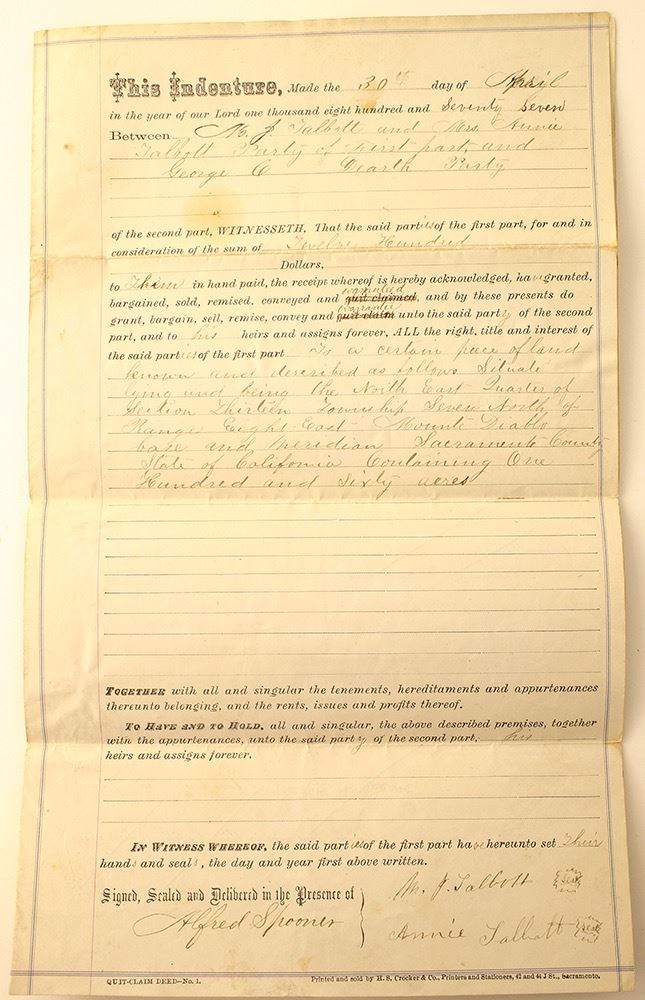 This Indenture, Made the 30th day of April
in the year of our Lord one thousand eight hundred and Seventy Seven
Between M. J. Talbott and Mrs. Annie
Talbott Party of First part, and
George C Dearth Party
of the second part, WITNESSETH, That the said parties of the first part, for and in
consideration of the sum of Twelve Hundred
Dollars,
to Them in hand paid, the receipt whereof is hereby acknowledged, have granted,
warranted
bargained, sold, remised, conveyed and quit claimed, and by these presents do
warranted
grant, bargain, sell, remise, convey and quit claim unto the said party of the second
part, and to his heirs and assigns forever, ALL the right, title and interest of
the said parties of the first part To a certain piece of land
known and described as follows Situate
lying and being the North East Quarter of
Section Thirteen Township Seven North, of
Range Eight East Mounte Diablo
base and Meridian Sacramento County
State of California Containing One
Hundred and Sixty acres
TOGETHER with all and singular the tenements, hereditaments and appurtenances
thereunto belonging, and the rents, issues and profits thereof.
TO HAVE AND TO HOLD, all and singular, the above described premises, together
with the appurtenances, unto the said party of the second part, his
heirs and assigns forever.
IN WITNESS WHEREOF, the said parties of the first part have hereunto set Their
hands and seals, the day and year first above written.
Signed, Sealed and Delivered in the Presence of
M. J. Talbott Seal
Alfred Spooner
Annie Talbott Seal
QUIT-CLAIM DEED—No. 1. Printed and sold by H. S. Crocker & Co., Printers and Stationers, 42 and 44 J St., Sacramento.